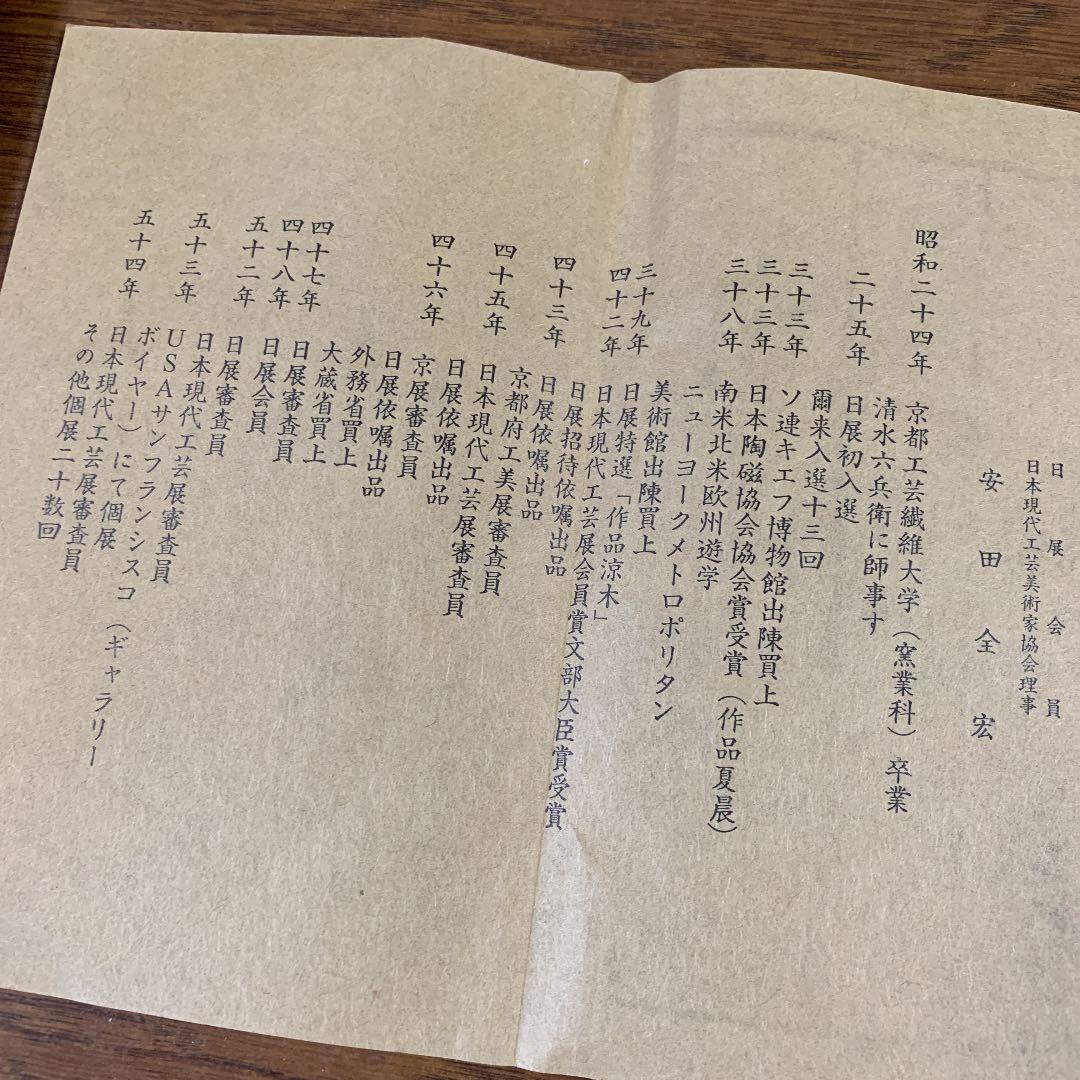 日展会員
日本現代工芸美術家協会理事
安田全宏
昭和二十四年 京都工芸繊維大学（窯業科）卒業
清水六兵衛に師事す
二十五年 日展初入選
爾来入選十三回
三十三年 ソ連キエフ博物館出陳買上
三十三年 日本陶磁協会協会賞受賞（作品夏晨）
三十八年 南米北米欧州遊学
ニューヨークメトロポリタン
美術館出陳買上
三十九年 日展特選「作品涼木」
四十二年 日本現代工芸展会員賞文部大臣賞受賞
日展招待依嘱出品
四十三年 日展依嘱出品
京都府工美展審査員
四十五年 日本現代工芸展審査員
日展依嘱出品
四十六年 京展審査員
日展依嘱出品
外務省買上
大蔵省買上
四十七年 日展審査員
四十八年 日展会員
五十二年 日展審査員
五十三年 日本現代工芸展審査員
USAサンフランシスコ（ギャラリー
ボイヤー）にて個展
五十四年 日本現代工芸展審査員
その他個展二十数回